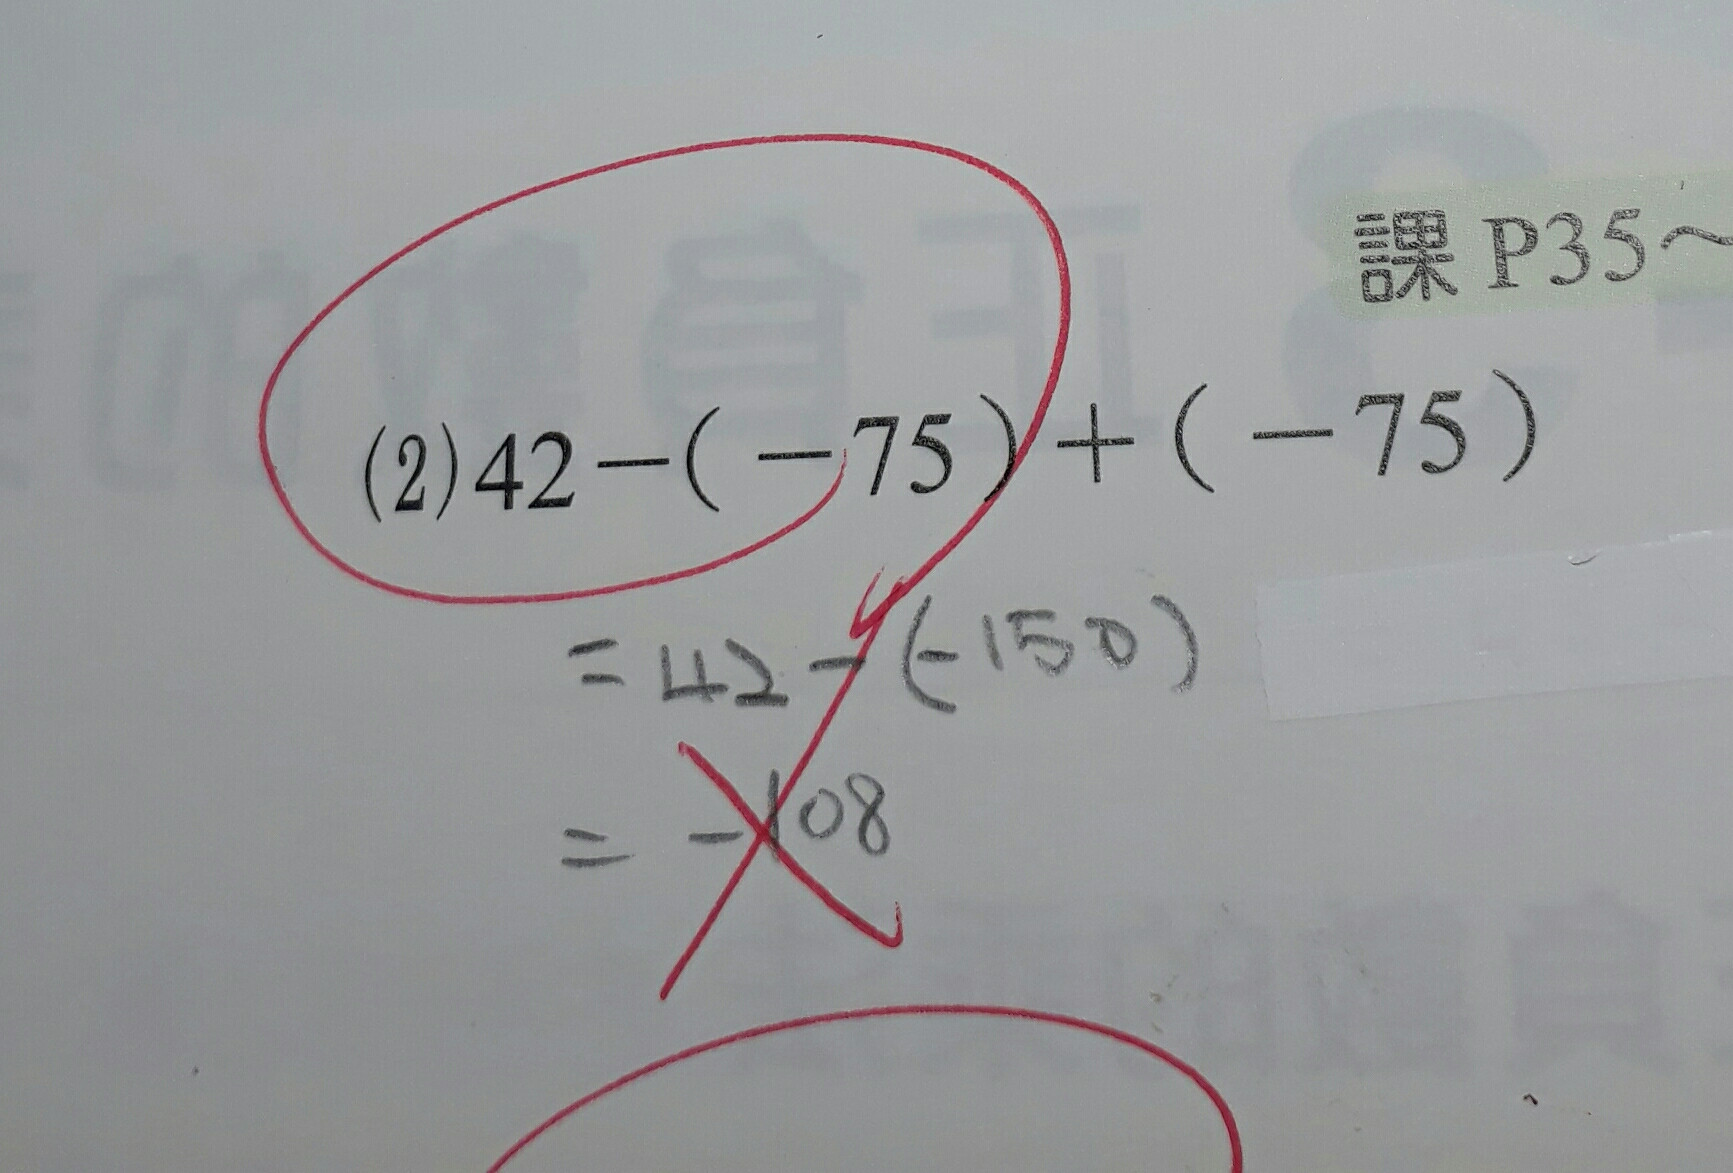 課 P35～
(2)42－(－75)＋(－75)
= 42 - (-150)
= -108